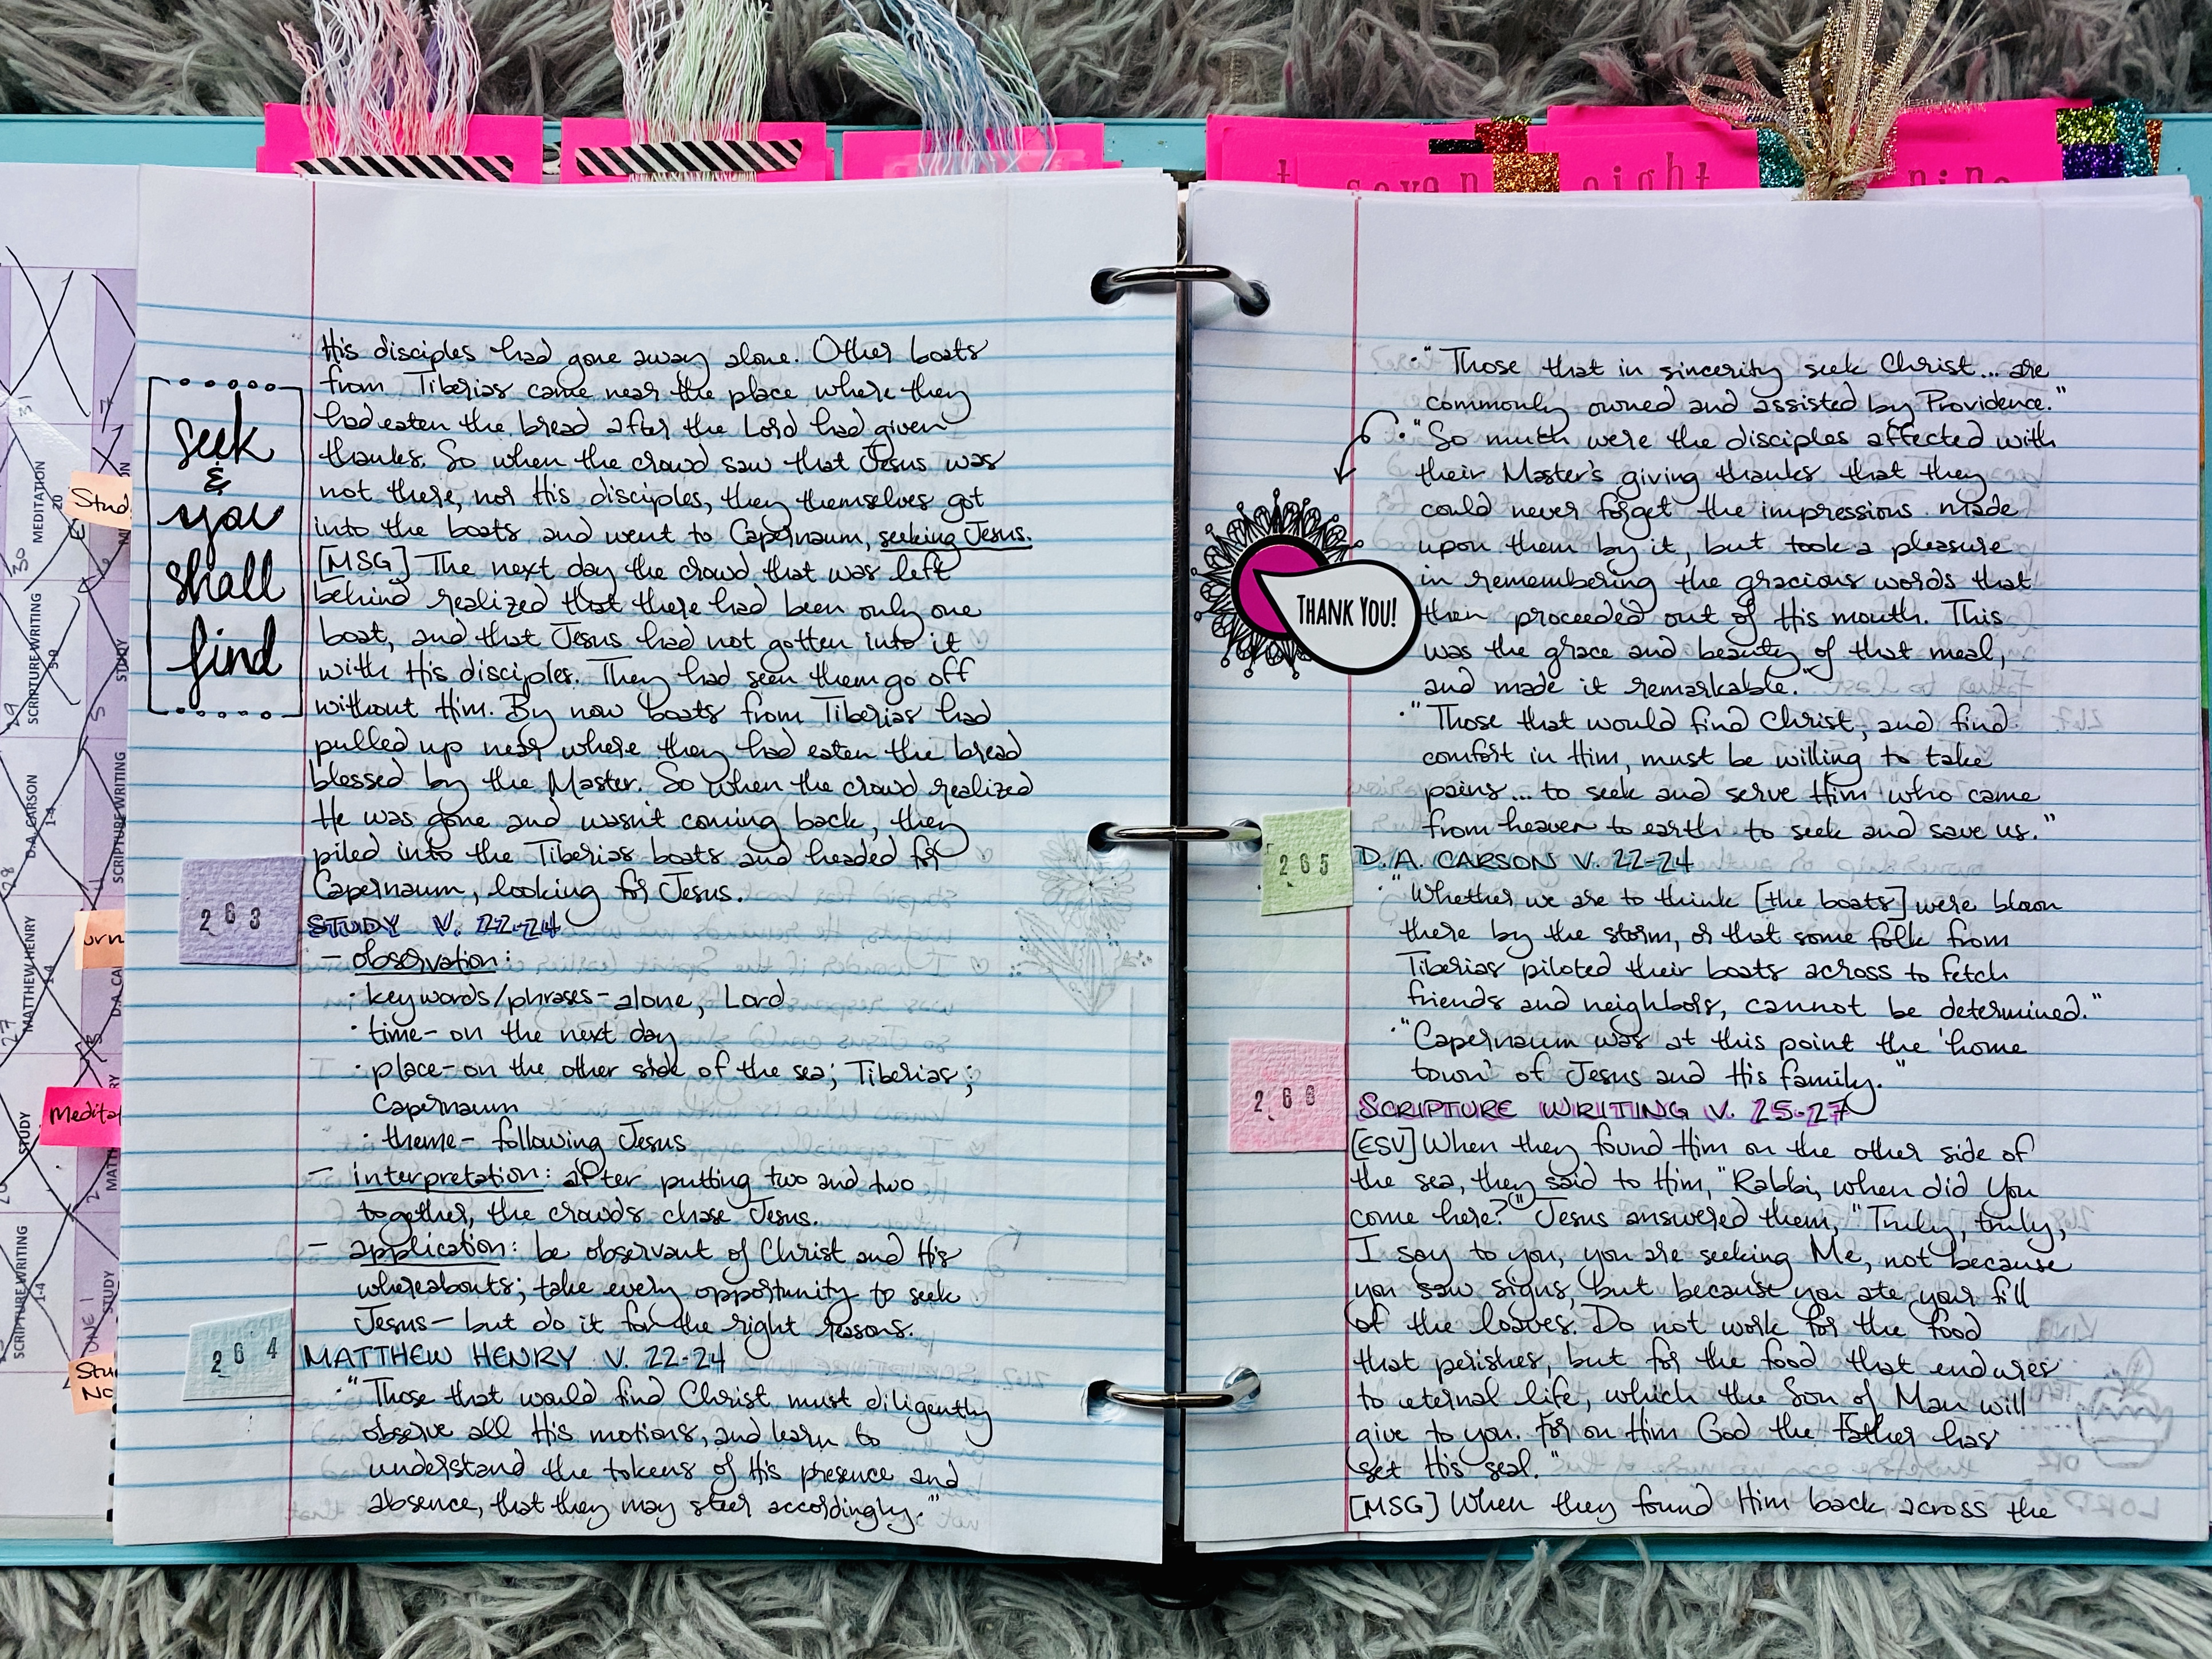 t seven eight nine
seek
&
you
shall
find
His disciples had gone away alone. Other boats
from Tiberias came near the place where they
had eaten the bread after the Lord had given
thanks. So when the crowd saw that Jesus was
not there, nor His disciples, they themselves got
into the boats and went to Capernaum, seeking Jesus.
[MSG] The next day the crowd that was left
behind realized that there had been only one
boat, and that Jesus had not gotten into it
with His disciples. They had seen them go off
without Him. By now boats from Tiberias had
pulled up near where they had eaten the bread
blessed by the Master. So when the crowd realized
He was gone and wasn't coming back, they
piled into the Tiberias boats and headed for
Capernaum, looking for Jesus.
263 STUDY V. 22-24
- observation:
· key words/phrases - alone, Lord
· time - on the next day
· place - on the other side of the sea; Tiberias;
Capernaum
· theme - following Jesus
- interpretation: after putting two and two
together, the crowds chase Jesus.
- application: be observant of Christ and His
whereabouts; take every opportunity to seek
Jesus - but do it for the right reasons.
264 MATTHEW HENRY V. 22-24
· "Those that would find Christ must diligently
observe all His motions, and learn to
understand the tokens of His presence and
absence, that they may steer accordingly."
· "Those that in sincerity seek Christ... are
commonly owned and assisted by Providence."
· "So much were the disciples affected with
their Master's giving thanks that they
could never forget the impressions made
upon them by it, but took a pleasure
in remembering the gracious words that
then proceeded out of His mouth. This
was the grace and beauty of that meal,
and made it remarkable."
THANK YOU!
· "Those that would find Christ, and find
comfort in Him, must be willing to take
pains... to seek and serve Him who came
from heaven to earth to seek and save us."
265 D.A. CARSON V. 22-24
· "Whether we are to think [the boats] were blown
there by the storm, or that some folk from
Tiberias piloted their boats across to fetch
friends and neighbors, cannot be determined."
· "Capernaum was at this point the 'home
town' of Jesus and His family."
266 SCRIPTURE WRITING V. 25-27
[ESV] When they found Him on the other side of
the sea, they said to Him, "Rabbi, when did You
come here?" Jesus answered them, "Truly, truly,
I say to you, you are seeking Me, not because
you saw signs, but because you ate your fill
of the loaves. Do not work for the food
that perishes, but for the food that endures
to eternal life, which the Son of Man will
give to you. For on Him God the Father has
set His seal."
[MSG] When they found Him back across the
MEDITATION
SCRIPTURE WRITING
D.A. CARSON
1-4
MATTHEW HENRY
1-4
STUDY
SCRIPTURE WRITING
1-4
STUDY
SCRIPTURE WRITING
STUDY
Stud
Medita